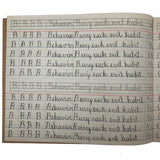 B B B B Behavior. Bury each evil habit.
B B B B Behavior. Bury each evil habit.
B B B B Behavior. Bury each evil habit.
B B B B Behavior. Bury each evil habit.
B B B B Behavior. Bury each evil habit.
B B B B Behavior. Bury each evil habit.
B B B B Behavior. Bury each evil habit.
B B B B Behavior. Bury each evil habit.
B B B B Behavior. Bury each evil habit.
B B B B Behavior. Bury each evil habit.